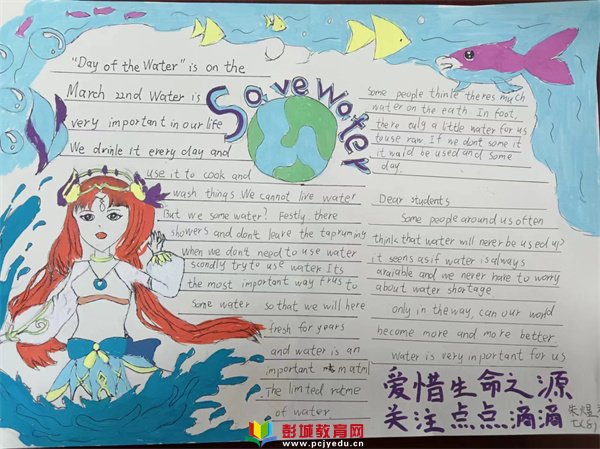 "Day of the Water" is on the
March 22nd Water is
very important in our life
We drinle It every day and
use it to cook and
wash things We cannot live water
But we some water? Festly there
showers and don't leave the tap runing
when we don't need to use water
scondly try to use water. Its
the most important way Frus to
Some water so that we will here
fresh for years
and water is an
important matnl
The limted
of water
Save Water
Some people thinle theres much
water on the earth. In foot,
there euly a little water for us
touse raw. If we dont some it
it waild be used and some
day.
Dear students
Some people around us often
think that water will never be used up?
it seems as if water is always
araiable and we never hare to worry
about water shortage
only in the way, can our world
become more and more better
Water is very inportant for us
爱惜生命之源
关注点点滴滴
七(8)
彭城教育网
www.pcjyedu.cn